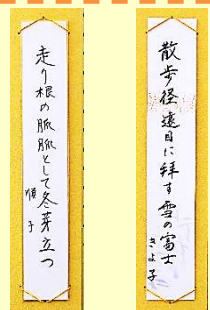 散歩径遠目に拝す雪の富士
きよ子
走り根の脈脈として冬芽立つ
順子